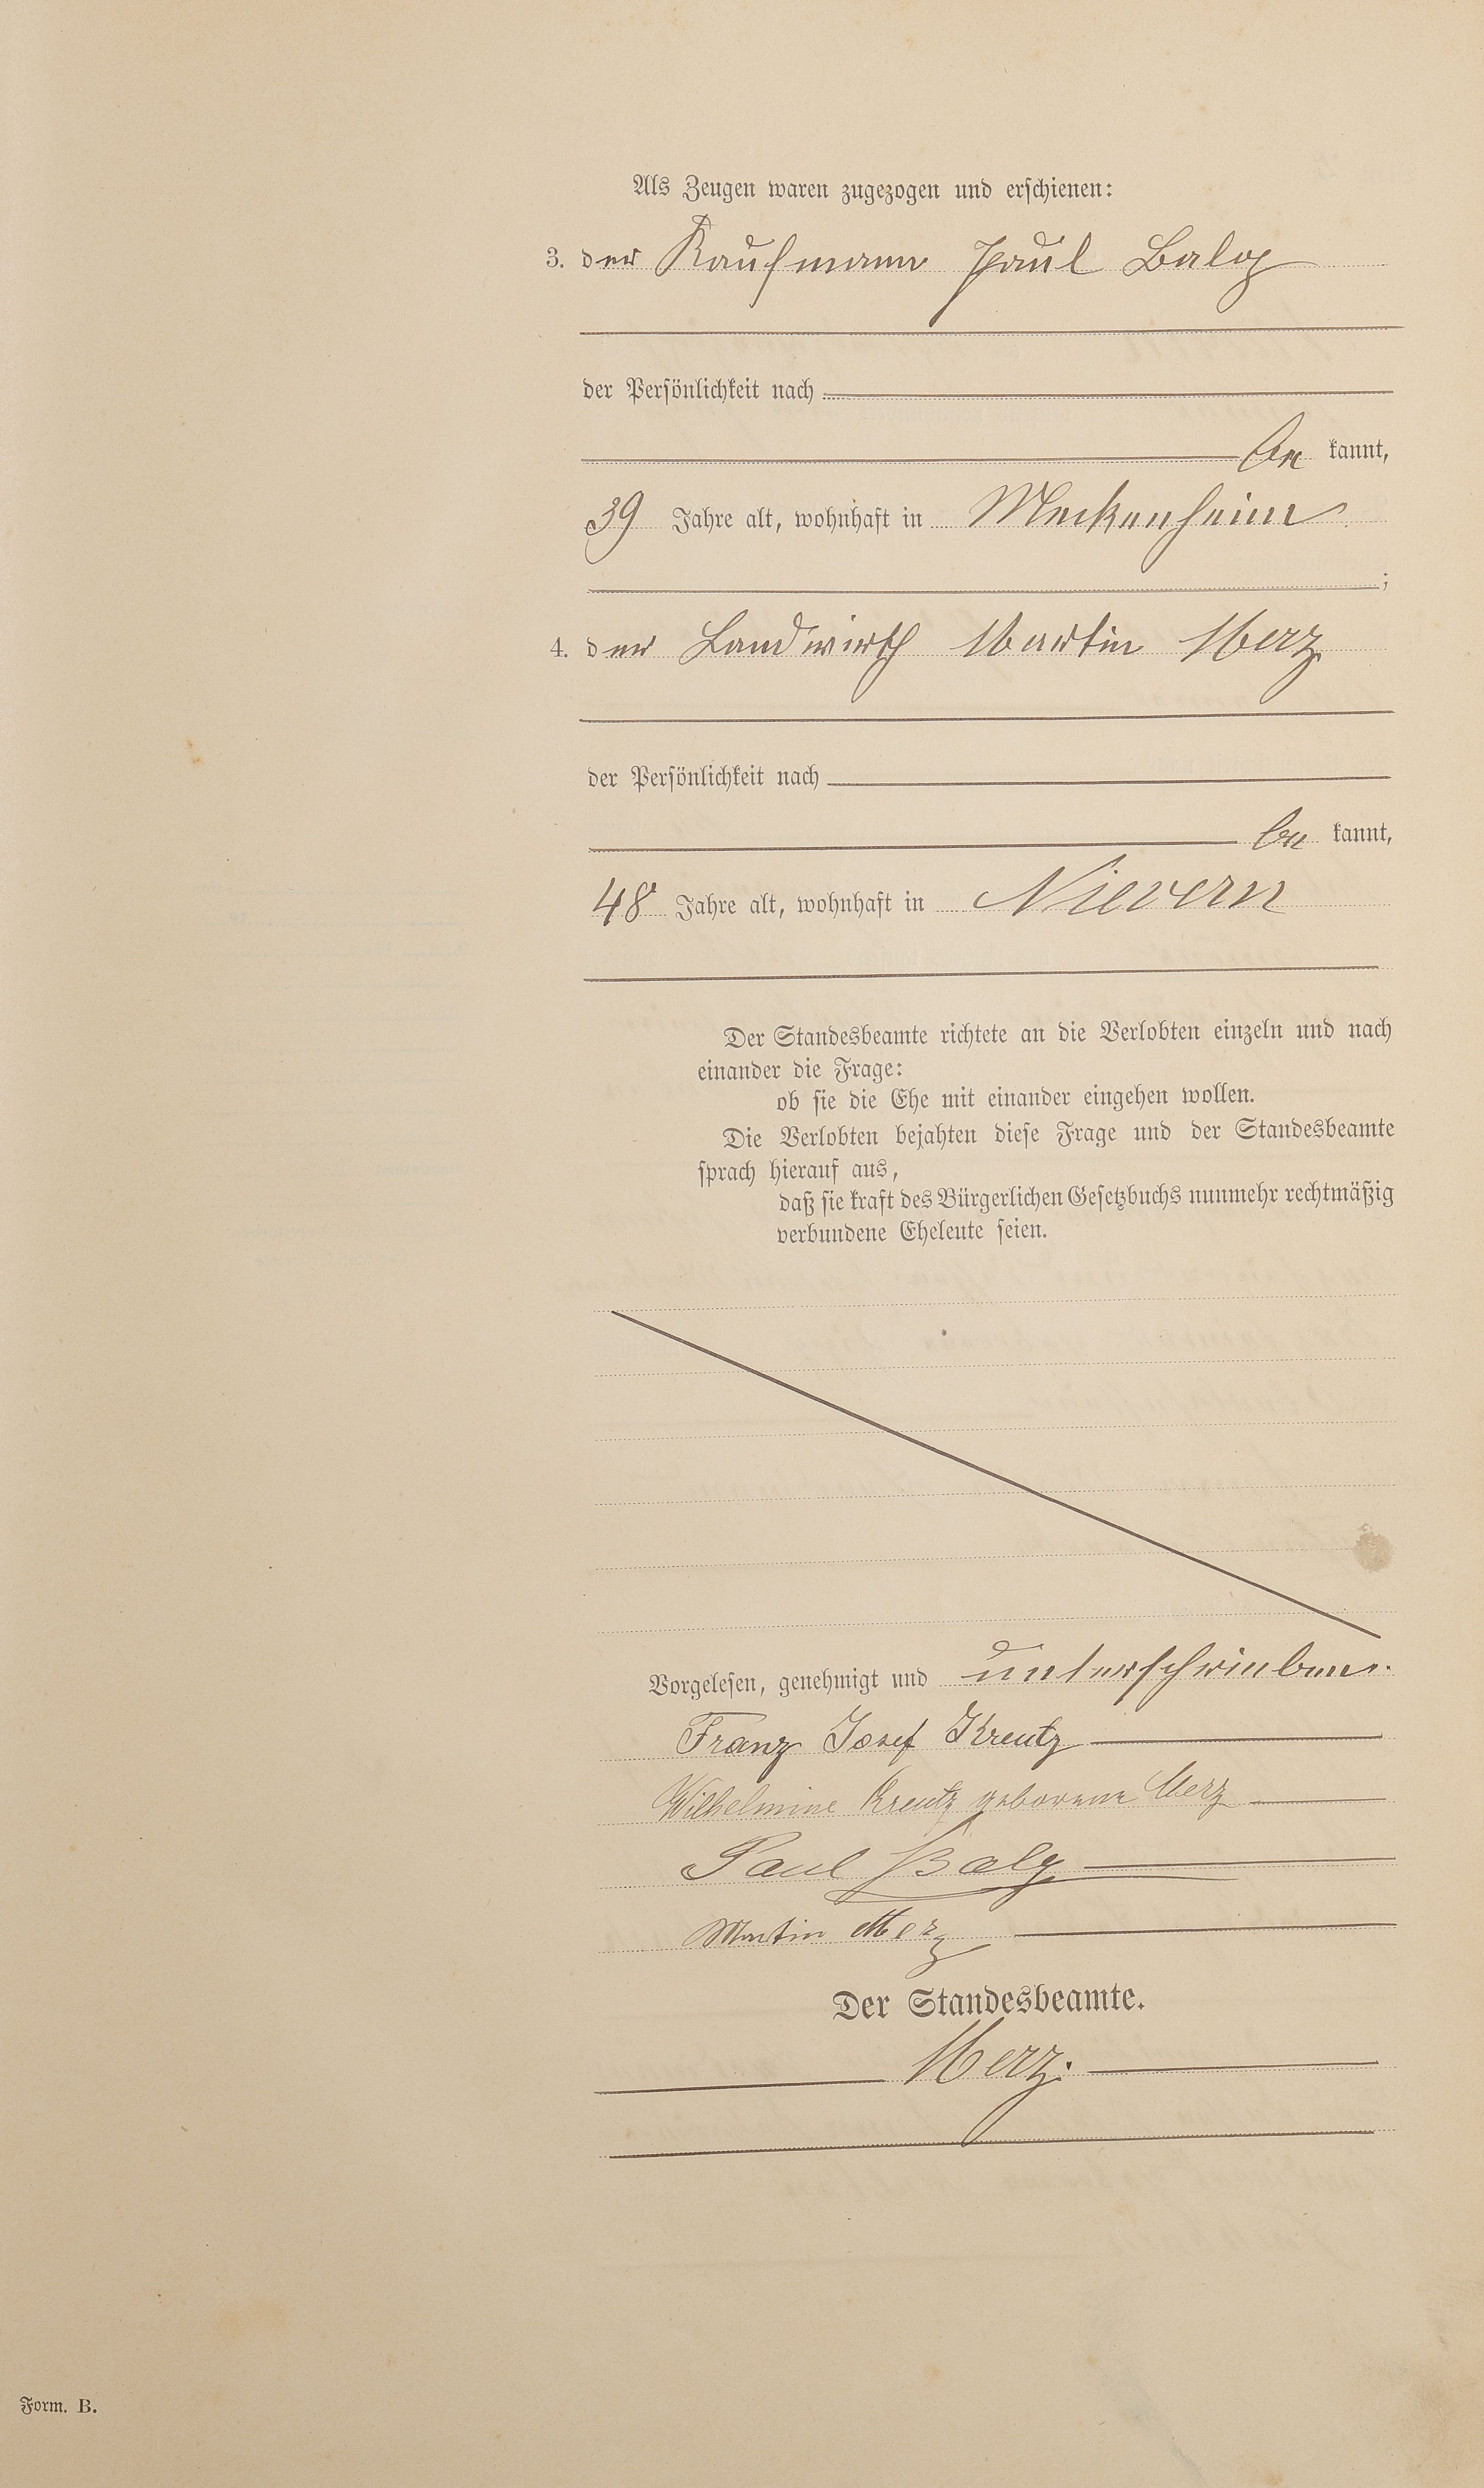 Als Zeugen waren zugezogen und erschienen:
3. der Kaufmann Paul Balg
der Persönlichkeit nach
be kannt,
39 Jahre alt, wohnhaft in Meckenheim
;
4. der Landwirth Martin Merz
der Persönlichkeit nach
be kannt,
48 Jahre alt, wohnhaft in Nievern
Der Standesbeamte richtete an die Verlobten einzeln und nach
einander die Frage:
ob sie die Ehe mit einander eingehen wollen.
Die Verlobten bejahten diese Frage und der Standesbeamte
sprach hierauf aus,
daß sie kraft des Bürgerlichen Gesetzbuchs nunmehr rechtmäßig
verbundene Eheleute seien.
Vorgelesen, genehmigt und unterschrieben.
Franz Josef Kreutz
Wilhelmine Kreutz geborene Merz
Paul Balg
Martin Merz
Der Standesbeamte.
Merz.
Form. B.